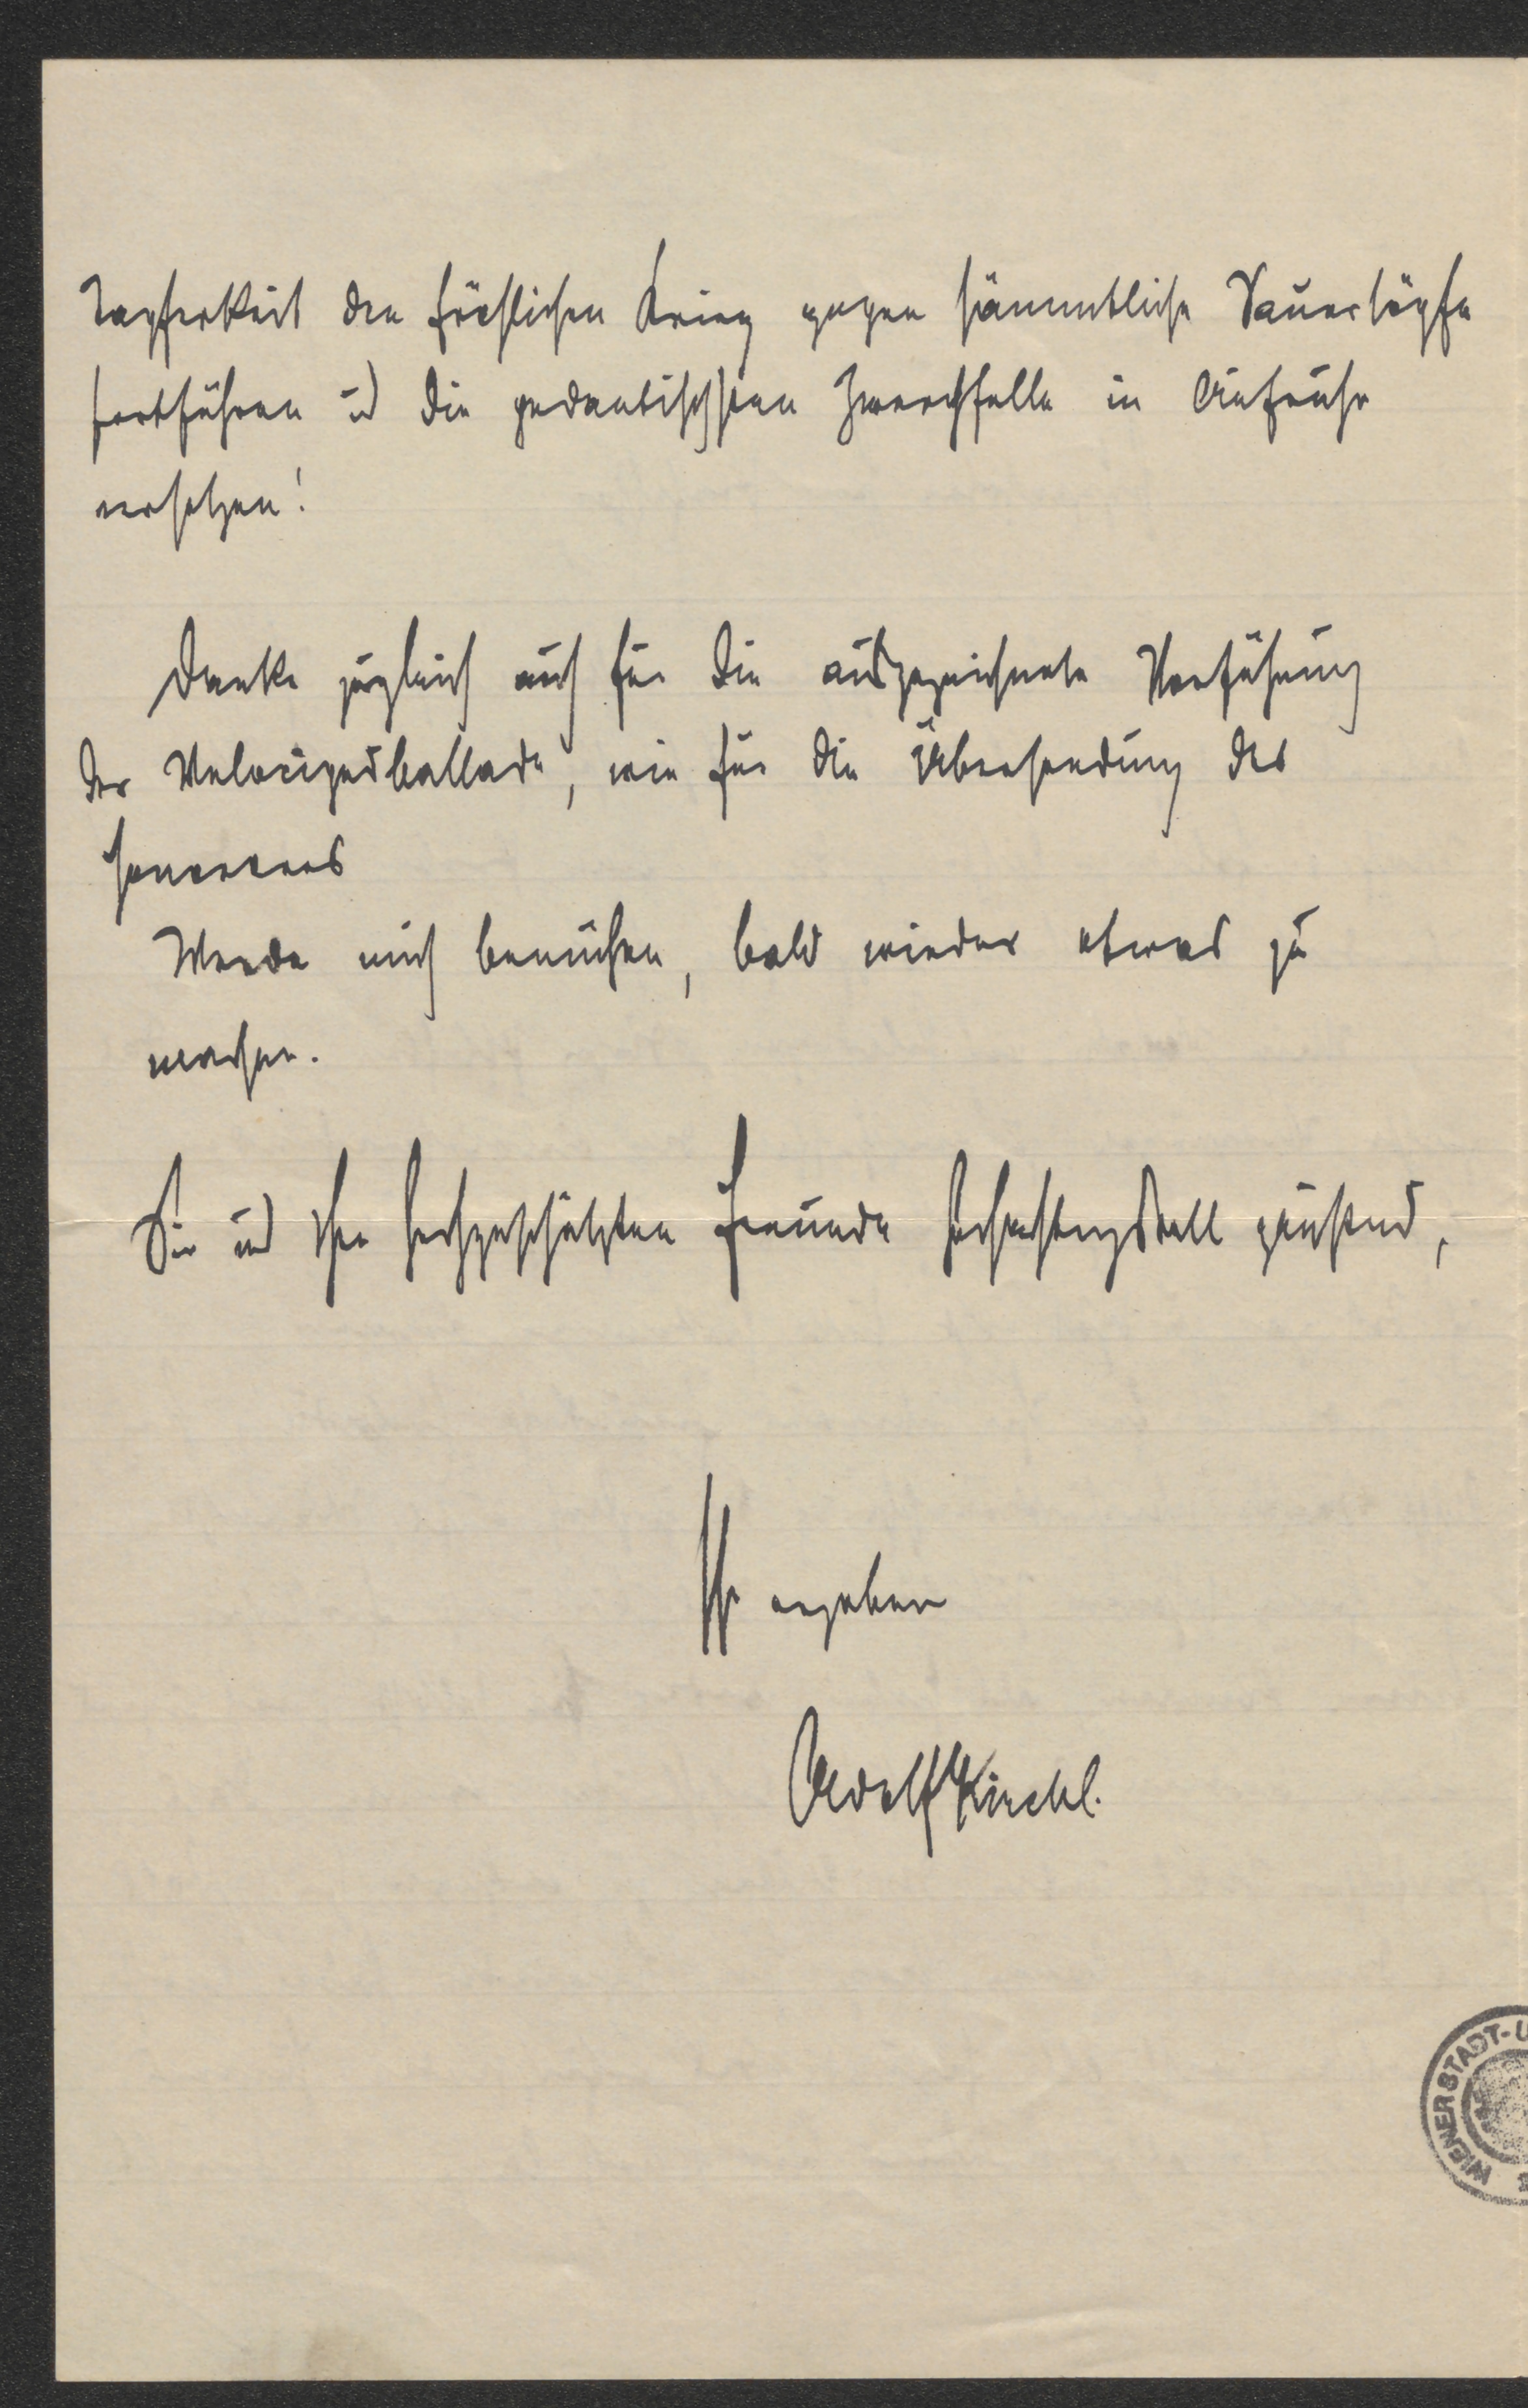 Tapferkeit den fröhlichen Krieg gegen sämmtliche Sauertöpfe
fortführen ud die pedantischsten Zwerchfelle in Aufruhr
versetzen!
Danke zugleich auch für die ausgezeichnete Vorführung
der Velocipedballade, wie für die Übersendung des
Honorares
Werde mich bemühen, bald wieder etwas zu
machen.
Sie ud Ihre hochgeschätzten Freunde hochachtungsvoll grüßend,
Ihr ergebener
Adolf Kirchl.
WIENER STADT-U